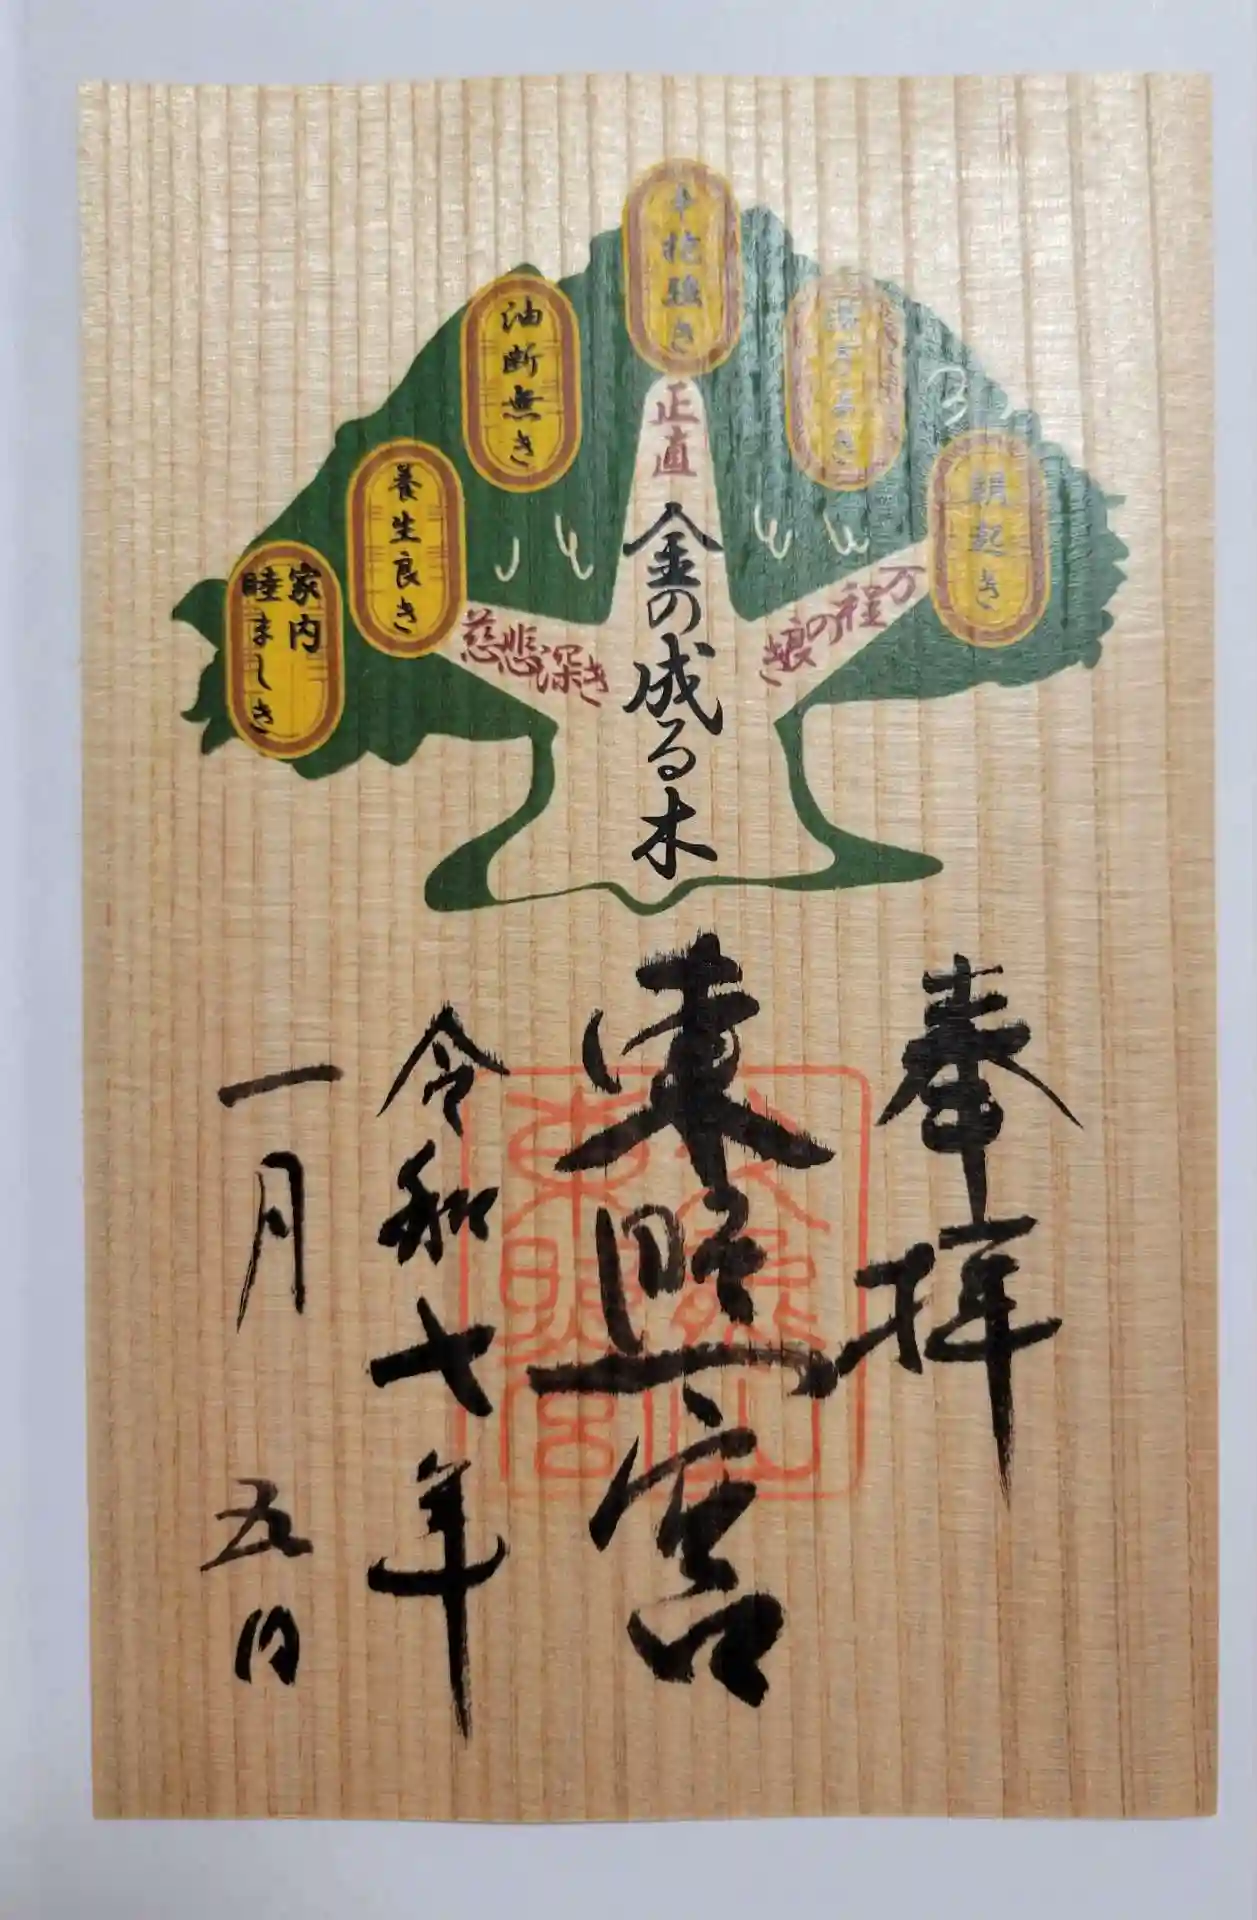 朝起き
辛抱強き
油断無き
養生良き
家内
睦ましき
万程の良き
正直
慈悲深き
金の成る木
奉拝
東照宮
久能山
東照宮
令和七年
一月五日